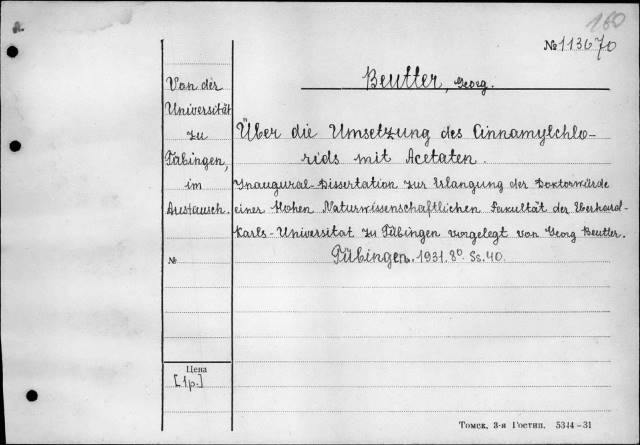 160
№ 113670
Beutler, Georg.
Von der
Universität
zu
Tübingen,
im
Austausch.
Über die Umsetzung des Cinnamylchlo-
rids mit Acetaten.
Inaugural-Dissertation zur Erlangung der Doktorwürde
einer Hohen Naturwissenschaftlichen Fakultät der Eberhard-
Karls-Universitat zu Tübingen vorgelegt von Georg Beutler.
Tübingen. 1931. 8º. Ss. 40.
№
Цена
[1р.]
Томск. 3-я Гостип. 5344-31